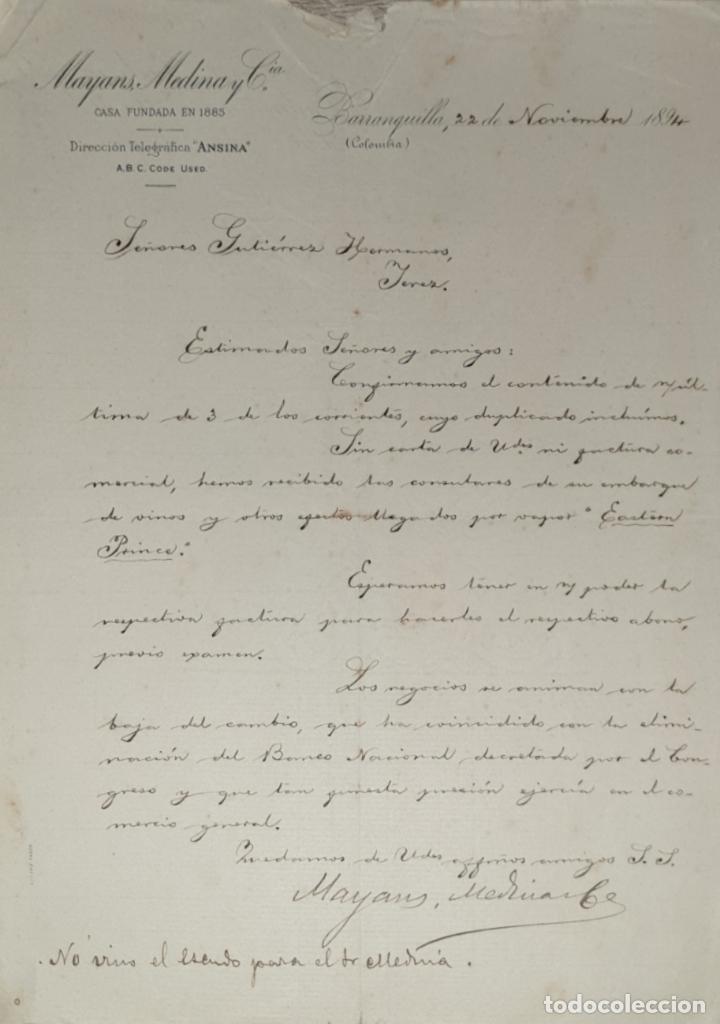 Mayans, Medina y Cía.
CASA FUNDADA EN 1885
Dirección Telegráfica "ANSINA"
A.B.C. CODE USED.
Barranquilla, 22 de Noviembre 1894
(Colombia)
Señores Gutiérrez Hermanos,
Jerez.
Estimados Señores y amigos:
Confirmamos el contenido de n/ úl-
tima de 3 de los corrientes, cuyo duplicado incluímos.
Sin carta de Udes ni factura co-
mercial, hemos recibido las consulares de su embarque
de vinos y otros efectos llegados por vapor "Eastern
Prince."
Esperamos tener en n/ poder la
respectiva factura para hacerles el respectivo abono,
previo examen.
Los negocios se animan con la
baja del cambio, que ha coincidido con la elimi-
nación del Banco Nacional decretada por el Con-
greso y que tan funesta presión ejercía en el co-
mercio general.
Quedamos de Udes affmos amigos S. S.
Mayans, Medina & Ce
No vino el Escudo para el Sr Medina.
todocoleccion